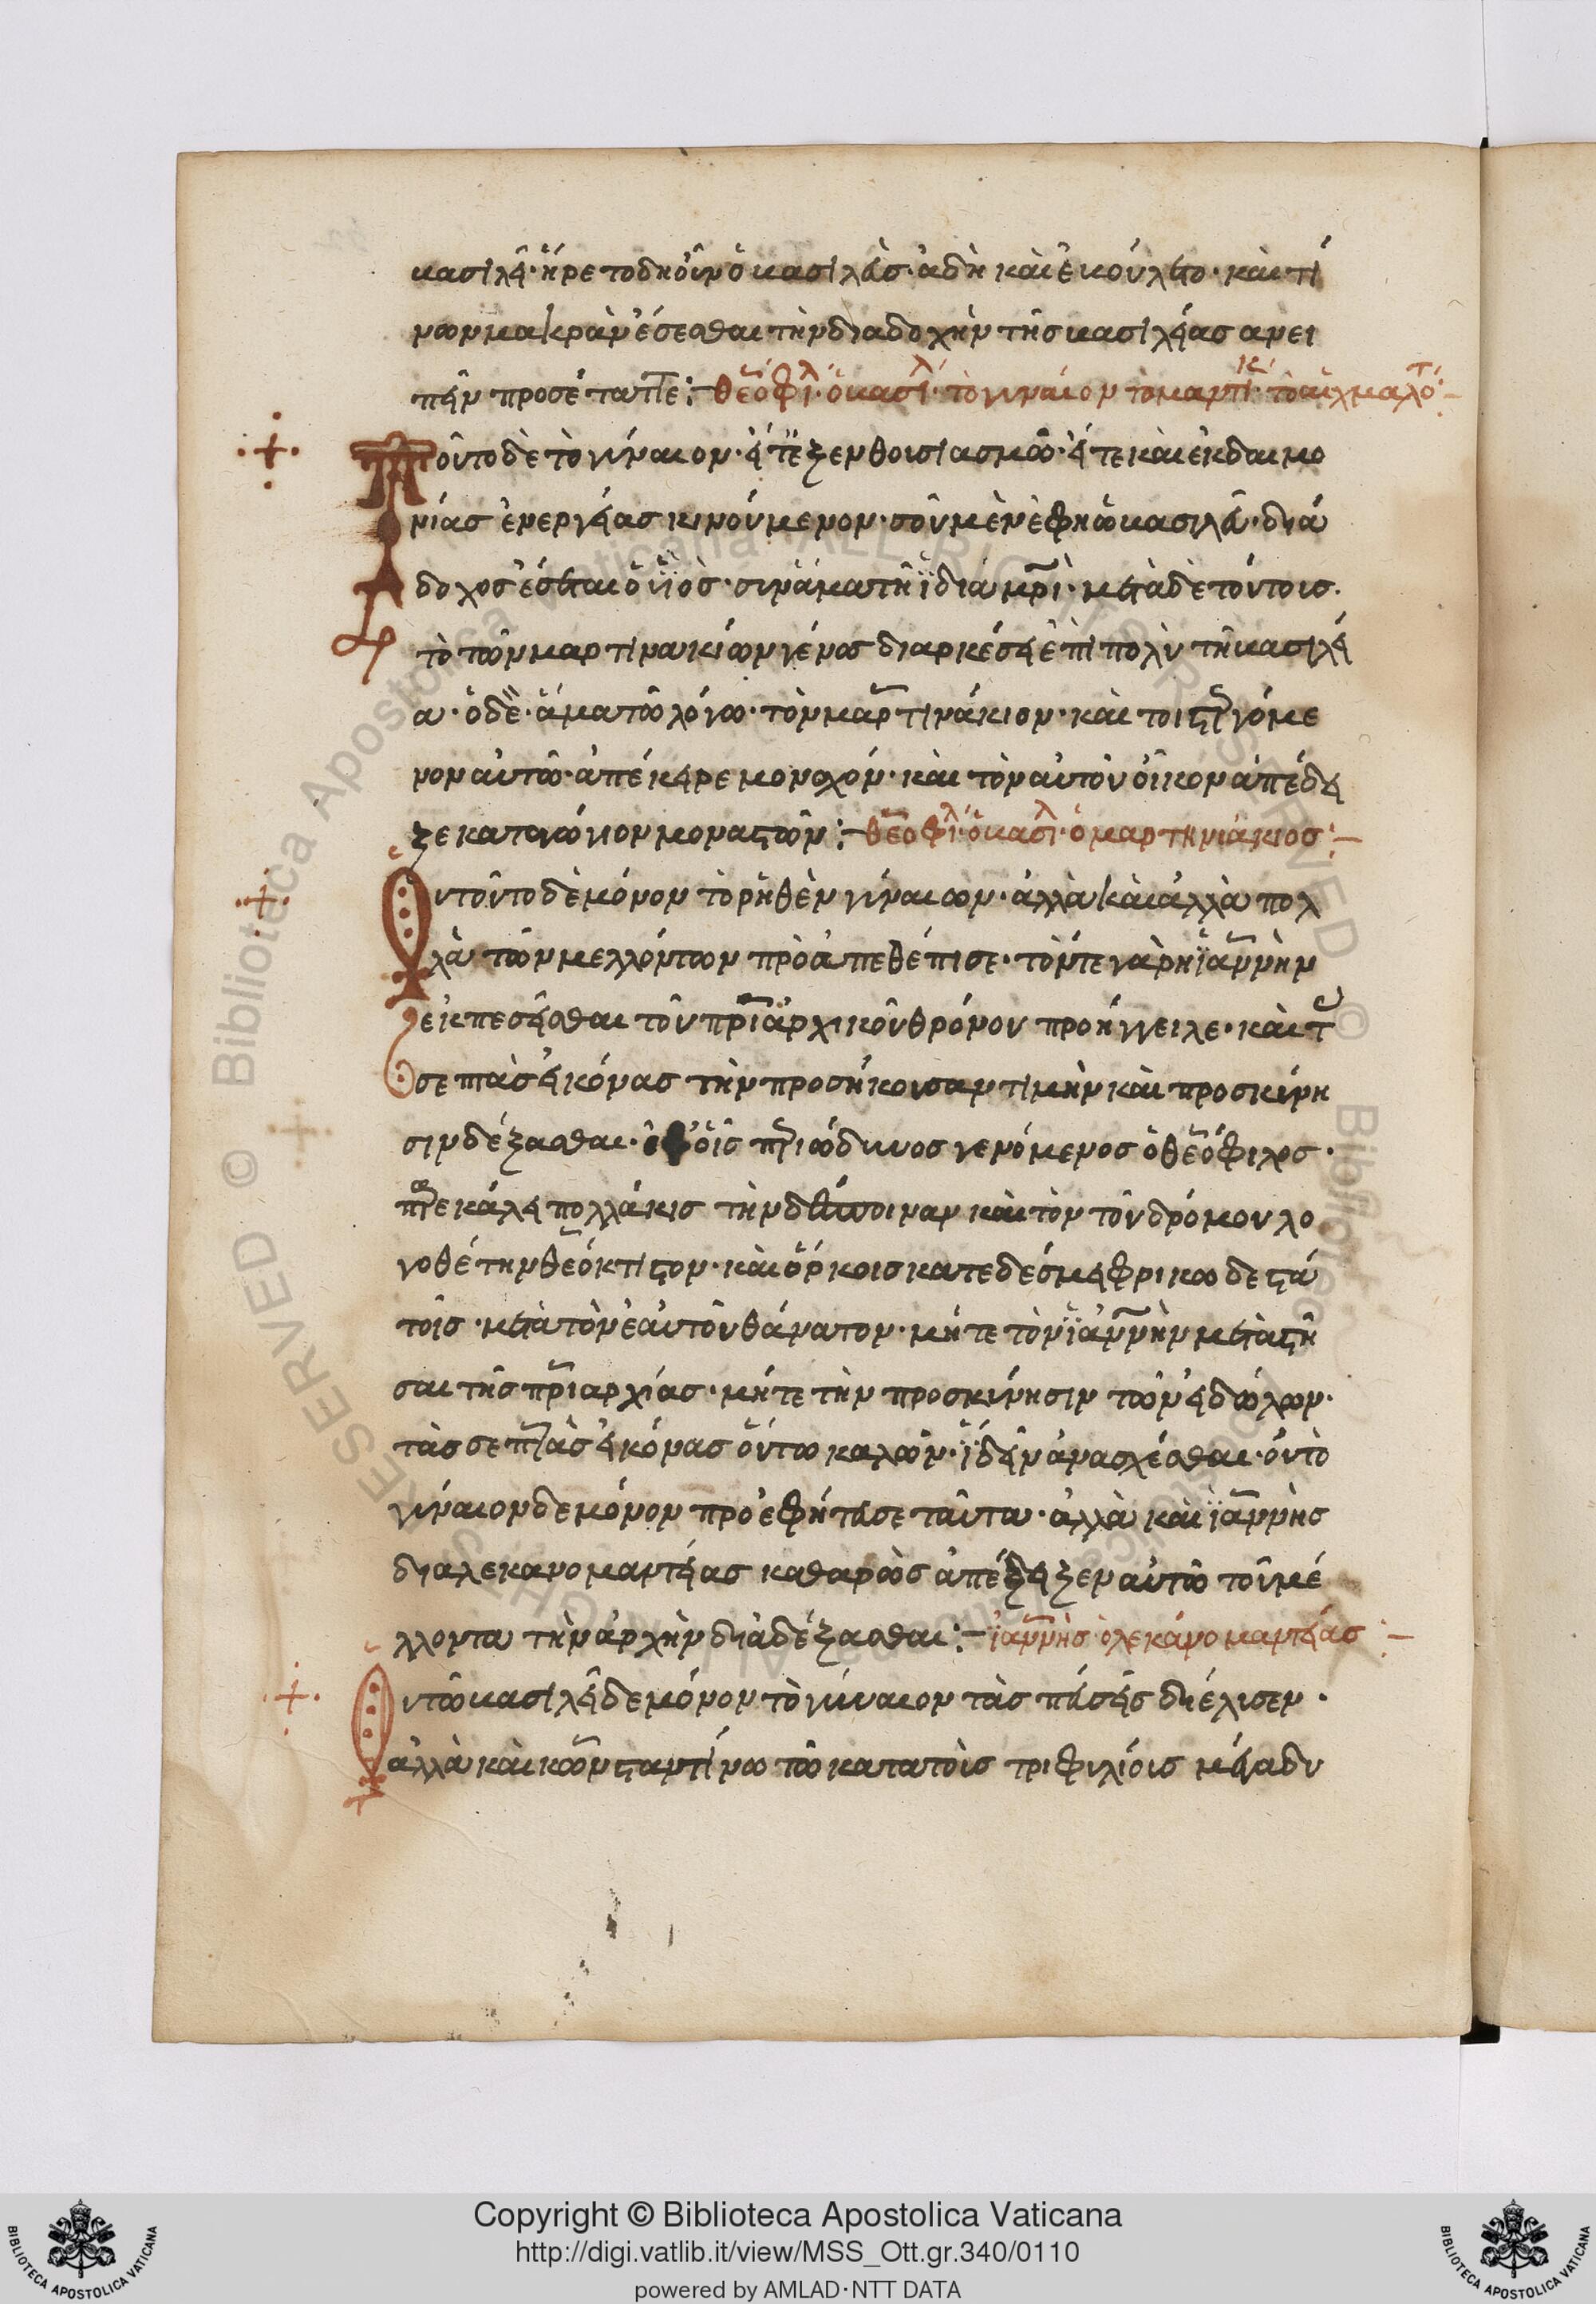 βασιλεῖ· ἤρετο δὴ οὖν ὁ βασιλεὺς· ἃ δὴ καὶ ἐβούλετο· καὶ τί
νων μακρὰν ἔσεσθαι τὴν διαδοχὴν τῆς βασιλείας ἀνει
πεῖν προσέταττε:– θεόφιλ· ὁ βασιλ· τὸ γύναιον τὸ μαντικ· τὸ αἰχμαλότ:–
Τοῦτο δὲ τὸ γύναιον· εἴτ' ἐξ ἐνθουσιασμῶ· εἴτε καὶ ἐκ δαιμο
νίας ἐνεργείας κινούμενον· σοῦ μὲν ἔφη ὦ βασιλεῦ· διά
δοχος ἔσται ὁ ϋἱὸς· σὺν ἅμα τῆ ϊδία μρὶ· μετὰ δὲ τούτοις·
τὸ τῶν μαρτινακίων γένος διαρκέσει ἐπὶ πολὺ τῆ βασιλεί
α· ὁ δὲ· ἅμα τῶ λόγω· τὸν μαρτινάκιον· καὶ τοι γενόμε
νον αὐτῶ· ἀπέκειρε μοναχόν· καὶ τὸν αὐτοῦ οἶκον ἀπέδει
ξε καταγώγιον μοναστῶν:– θεόφιλ· ὁ βασιλ· ὁ μαρτηνιάκιος:–
Οὐ τοῦτο δὲ μόνον τὸ ῥηθὲν γύναιων· ἀλλὰ καὶ ἀλλὰ πολ
λὰ τῶν μελλόντων πρὸ ἀπεθέπισε· τόντε γὰρ ἠϊαννὴν
ἐκπεσεῖσθαι τοῦ πριαρχικοῦ θρόνου προήγγειλε· καὶ τ
σεπτὰς εἰκόνας τὴν προσήκουσαν τιμὴν καὶ προσκύνη
σιν δέξασθαι· ἐφ' οἷς περιώδυνος γενόμενος ὁ θεόφιλος·
παρεκάλει πολλάκις τὴν δέσποιναν καὶ τὸν τοῦ δρόμου λο
γοθέτην θεόκτιστον· καὶ ὅρκοις κατεδέσμει φρικωδεστά
τοις· μετὰ τὸν ἑαυτοῦ θάνατον· μήτε τὸν ϊαννὴν μεταστῆ
σαι τῆς πριαρχίας· μήτε τὴν προσκύνησιν τῶν εἰδώλων·
τὰς σεπτὰς εἰκόνας οὕτω καλῶν· ϊδεῖν ἀνασχέσθαι· οὐ τὸ
γύναιον δε μόνον προεφήτευσε ταῦτα· ἀλλὰ καὶ ϊαννὴς
διαλεκανομαντείας καθαρῶς ἀπέδειξεν αὐτῶ τοῦ μέ
λλοντα τὴν ἀρχὴν διαδέξασθαι:– ἰαννὴς ὁ λεκάνο μαντείας:–
Οὐ τῶ βασιλεῖ δε μόνον τὸ γύναιον τὰς πεύσεις διέλισεν·
ἀλλὰ καὶ κωνσταντίνω τῶ κατὰ τοὺς τριφυλίοις μέγα δυ